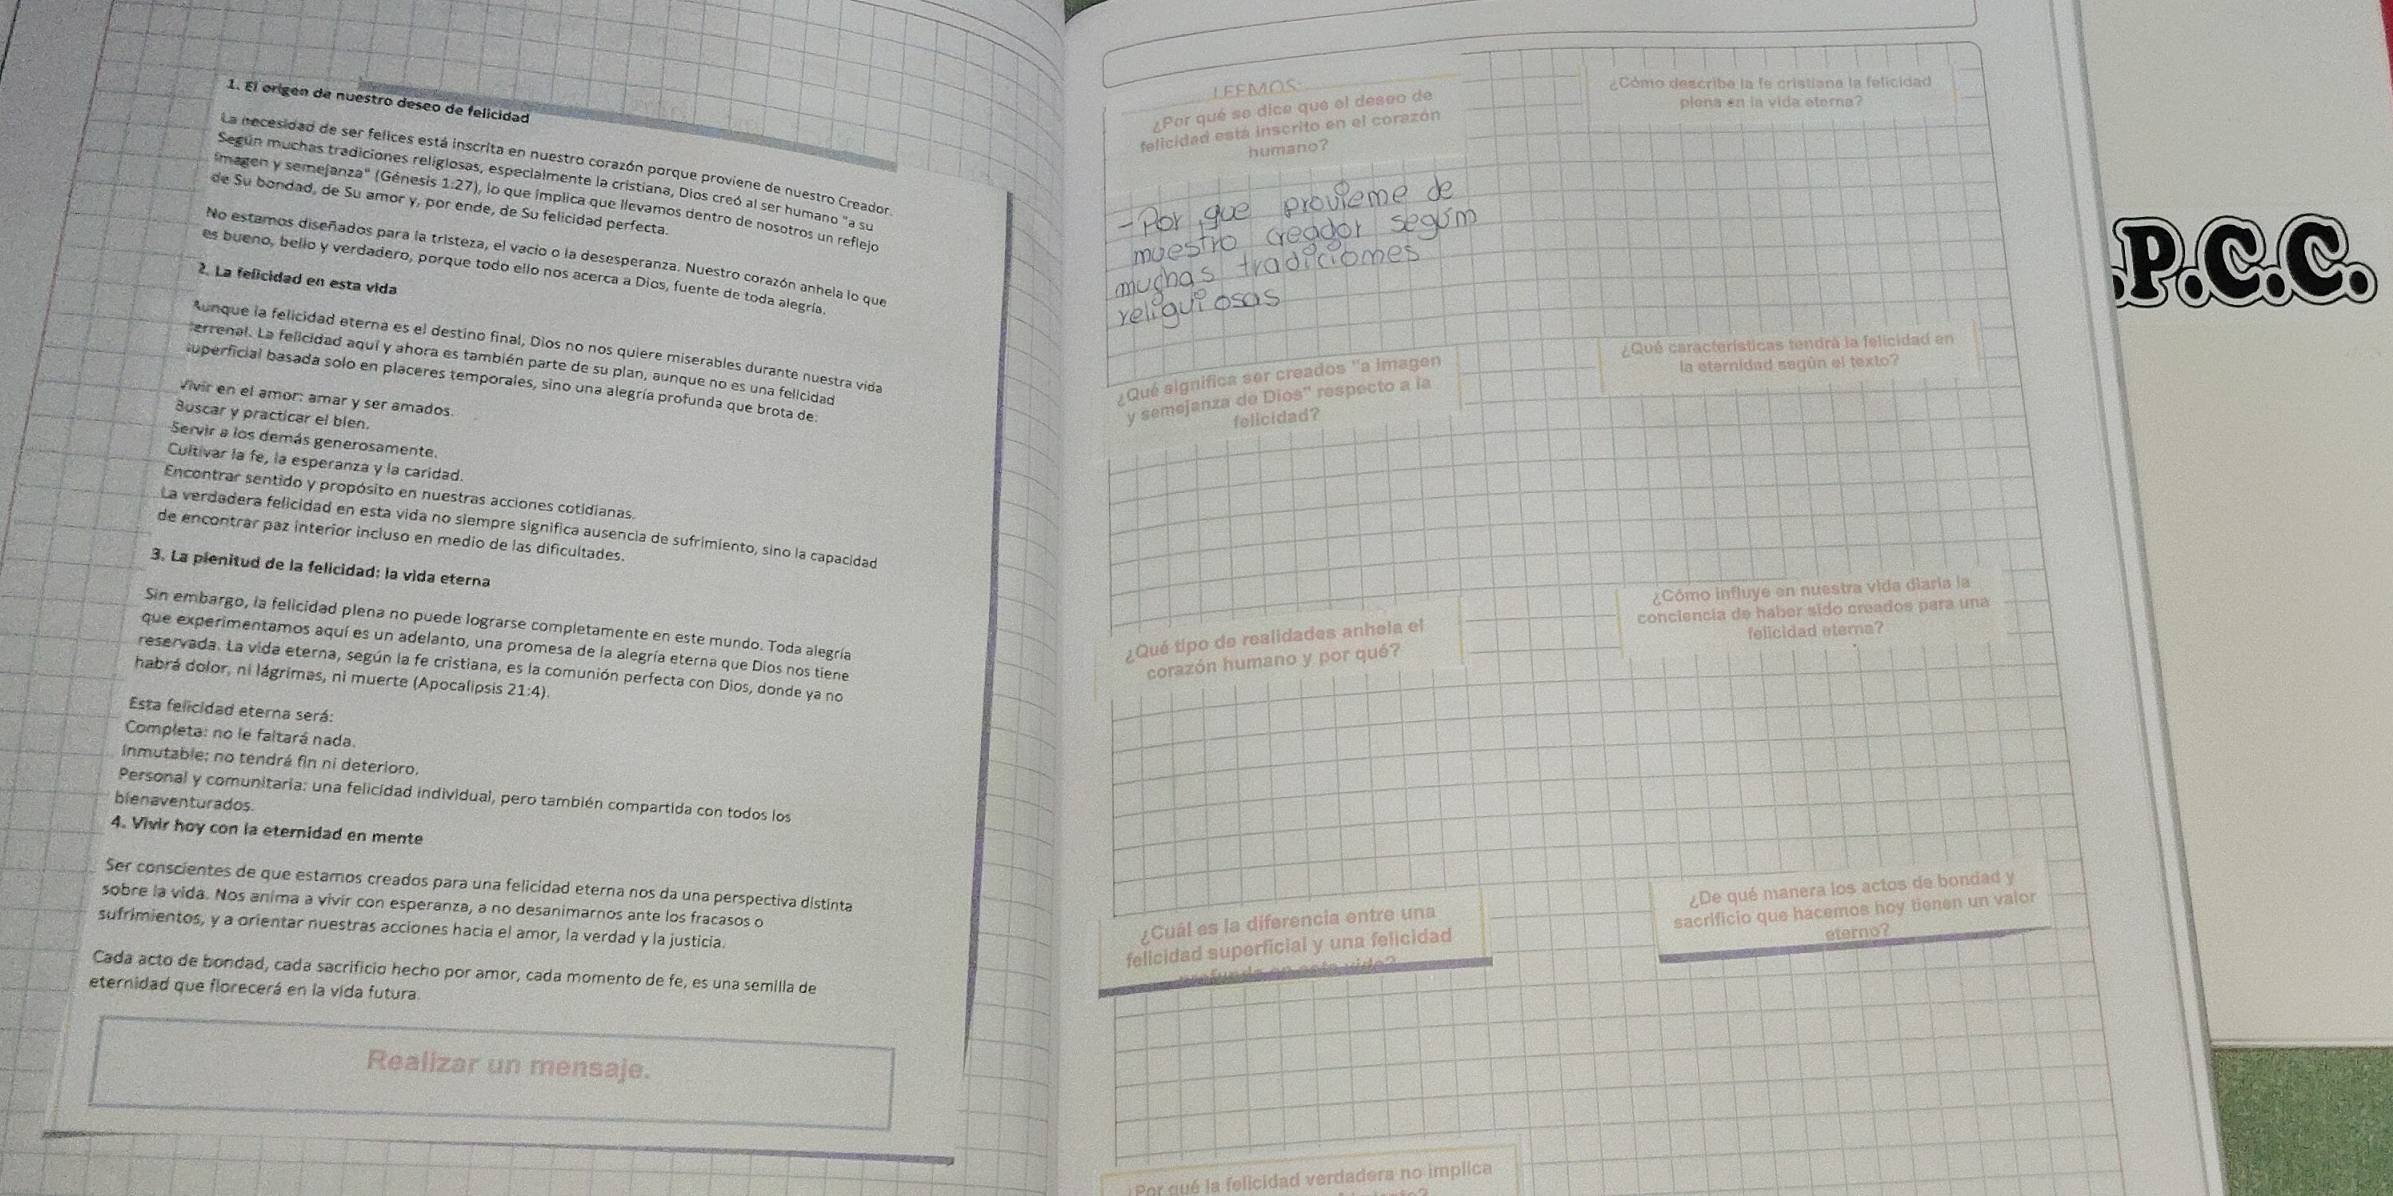 1. El origen de nuestro deseo de felicidad
La necesidad de ser felices está inscrita en nuestro corazón porque proviene de nuestro Creador.
Según muchas tradiciones religiosas, especialmente la cristiana, Dios creó al ser humano "a su
imagen y semejanza" (Génesis 1:27), lo que implica que llevamos dentro de nosotros un reflejo
de Su bondad, de Su amor y, por ende, de Su felicidad perfecta.
No estamos diseñados para la tristeza, el vacío o la desesperanza. Nuestro corazón anhela lo que
es bueno, bello y verdadero, porque todo ello nos acerca a Dios, fuente de toda alegría.
2. La felicidad en esta vida
Aunque la felicidad eterna es el destino final, Dios no nos quiere miserables durante nuestra vida
terrenal. La felicidad aquí y ahora es también parte de su plan, aunque no es una felicidad
superficial basada solo en placeres temporales, sino una alegría profunda que brota de:
Vivir en el amor: amar y ser amados.
Buscar y practicar el bien.
Servir a los demás generosamente.
Cultivar la fe, la esperanza y la caridad.
Encontrar sentido y propósito en nuestras acciones cotidianas.
La verdadera felicidad en esta vida no siempre significa ausencia de sufrimiento, sino la capacidad
de encontrar paz interior incluso en medio de las dificultades.
3. La plenitud de la felicidad: la vida eterna
Sin embargo, la felicidad plena no puede lograrse completamente en este mundo. Toda alegría
que experimentamos aquí es un adelanto, una promesa de la alegría eterna que Dios nos tiene
reservada. La vida eterna, según la fe cristiana, es la comunión perfecta con Dios, donde ya no
habrá dolor, ni lágrimas, ni muerte (Apocalipsis 21:4).
Esta felicidad eterna será:
Completa: no le faltará nada.
Inmutable: no tendrá fin ni deterioro.
Personal y comunitaria: una felicidad individual, pero también compartida con todos los
bienaventurados.
4. Vivir hoy con la eternidad en mente
Ser conscientes de que estamos creados para una felicidad eterna nos da una perspectiva distinta
sobre la vida. Nos anima a vivir con esperanza, a no desanimarnos ante los fracasos o
sufrimientos, y a orientar nuestras acciones hacia el amor, la verdad y la justicia.
Cada acto de bondad, cada sacrificio hecho por amor, cada momento de fe, es una semilla de
eternidad que florecerá en la vida futura.
Realizar un mensaje.
LEEMOS:
¿Por qué se dice que el deseo de
felicidad está inscrito en el corazón
humano?
- Por que provieme de
muestro creador segúm
muchas tradiciomes
religuiosas
¿Qué significa ser creados "a imagen
y semejanza de Dios" respecto a la
felicidad?
¿Qué tipo de realidades anhela el
corazón humano y por qué?
¿Cuál es la diferencia entre una
felicidad superficial y una felicidad
profunda en esta vida?
¿Por qué la felicidad verdadera no implica
¿Cómo describe la fe cristiana la felicidad
plena en la vida eterna?
¿Qué características tendrá la felicidad en
la eternidad según el texto?
¿Cómo influye en nuestra vida diaria la
conciencia de haber sido creados para una
felicidad eterna?
¿De qué manera los actos de bondad y
sacrificio que hacemos hoy tienen un valor
eterno?
P.C.C.